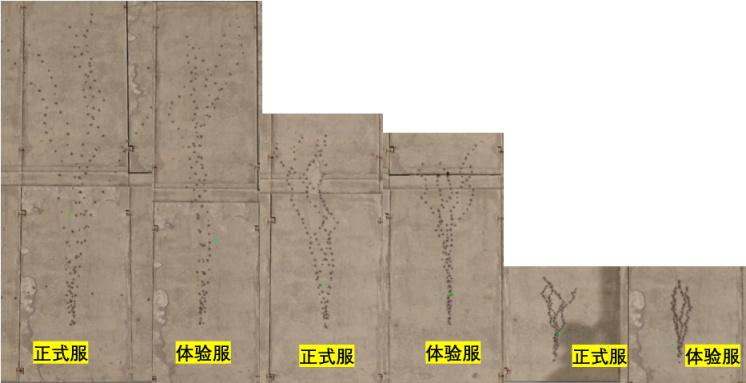 正式服
体验服
正式服
体验服
正式服
体验服